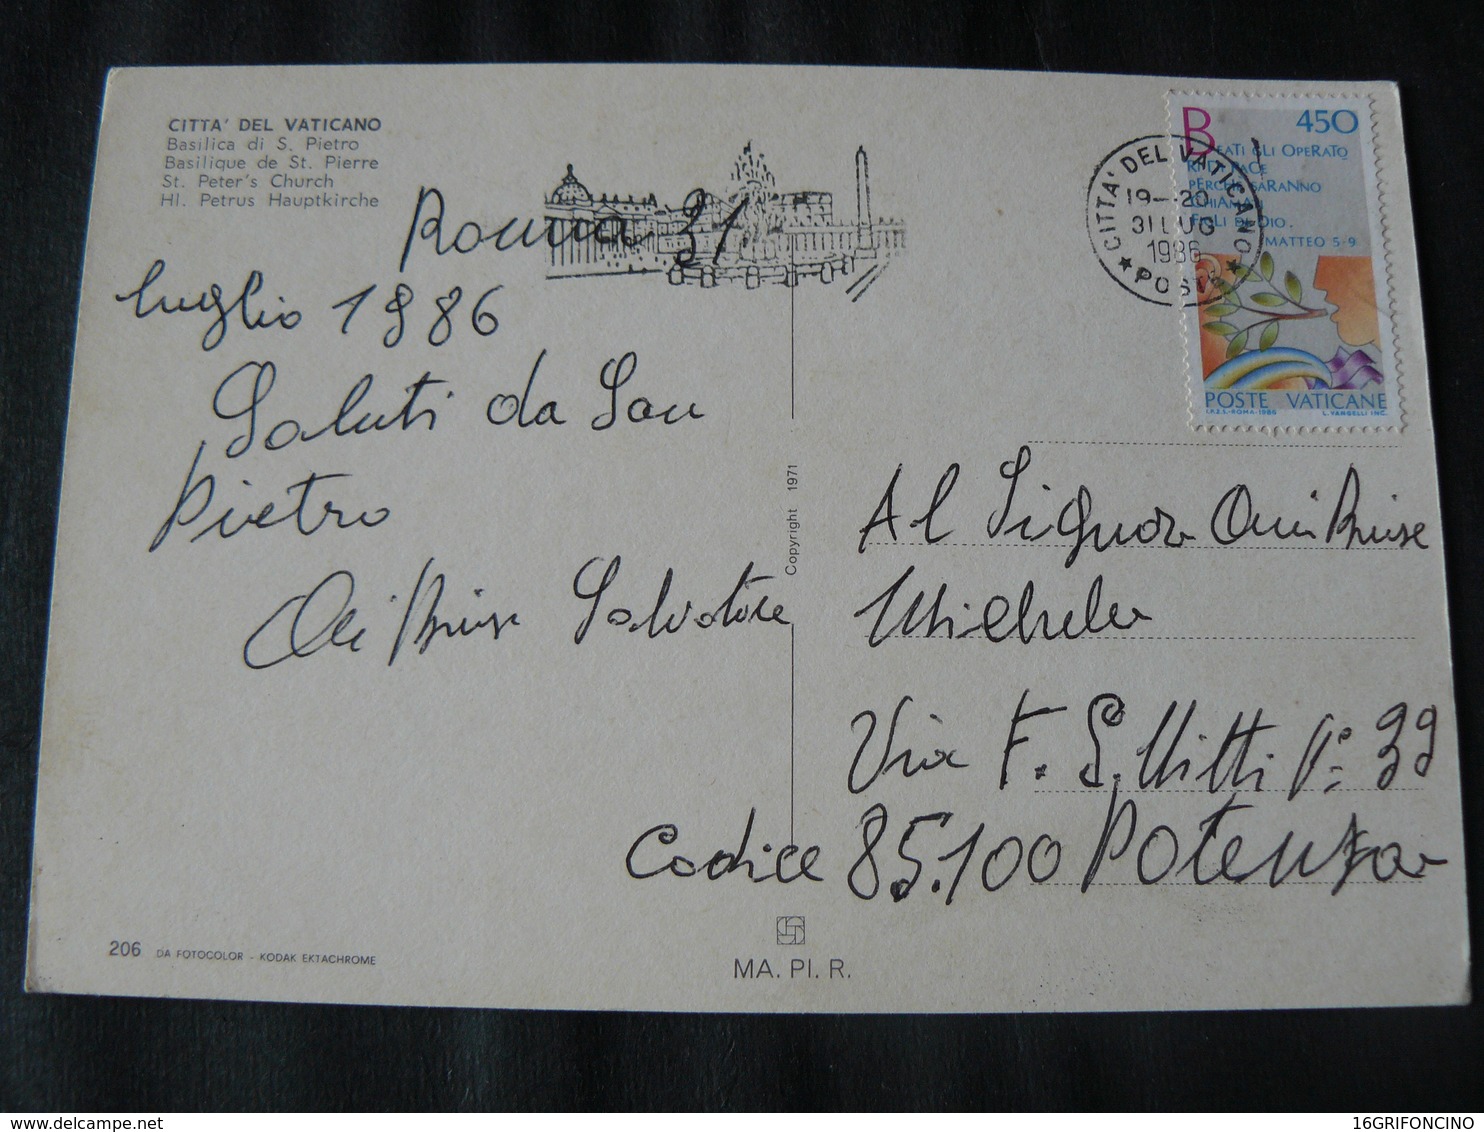 CITTA' DEL VATICANO
Basilica di S. Pietro
Basilique de St. Pierre
St. Peter's Church
Hl. Petrus Hauptkirche
Roma 31
luglio 1986
Saluti da San
Pietro
Salvatore
CITTA' DEL VATICANO
19-20
31 LUG
1986
★ POSTE ★
450
BEATI GLI OPERATO
RI DI PACE
PERCHÉ SARANNO
CHIAMATI
FIGLI DI DIO.
MATTEO 5-9
POSTE VATICANE
I.P.Z.S.-ROMA-1986 L. VANGELLI INC.
Copyright 1971
Al Signor
Michele
Via F. S. Nitti n° 39
Codice 85.100 Potenza
206 DA FOTOCOLOR - KODAK EKTACHROME
MA. PI. R.
16GRIFONCINO